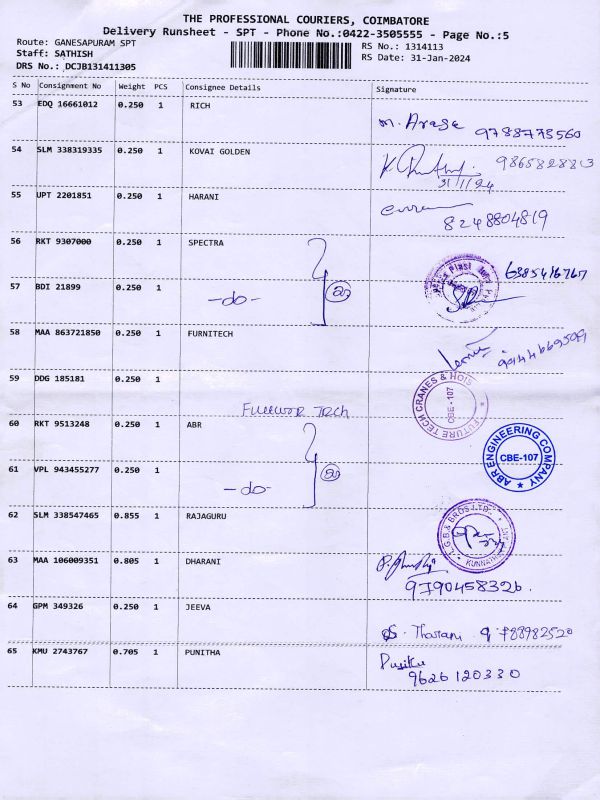 THE PROFESSIONAL COURIERS, COIMBATORE
Delivery Runsheet - SPT - Phone No.:0422-3505555 - Page No.:5
Route: GANESAPURAM SPT
Staff: SATHISH
DRS No.: DCJB131411305
RS No.: 1314113
RS Date: 31-Jan-2024
S No Consignment No Weight PCS Consignee Details Signature
53 EDQ 16661012 0.250 1 RICH
9788775560
54 SLM 338319335 0.250 1 KOVAI GOLDEN
31/1/24
55 UPT 2201851 0.250 1 HARANI
8248804819
56 RKT 9307000 0.250 1 SPECTRA
57 BDI 21899 0.250 1 -do-
58 MAA 863721850 0.250 1 FURNITECH
59 DDG 185181 0.250 1
FUTURE TECH CRANES & HOIS
CBE-107
60 RKT 9513248 0.250 1 ABR
ABR ENGINEERING COMPANY
CBE-107
61 VPL 943455277 0.250 1 -do-
62 SLM 338547465 0.855 1 RAJAGURU
L.G.B. & BROS.LTD.
63 MAA 106009351 0.805 1 DHARANI
9790458326.
64 GPM 349326 0.250 1 JEEVA
65 KMU 2743767 0.705 1 PUNITHA
9626120330